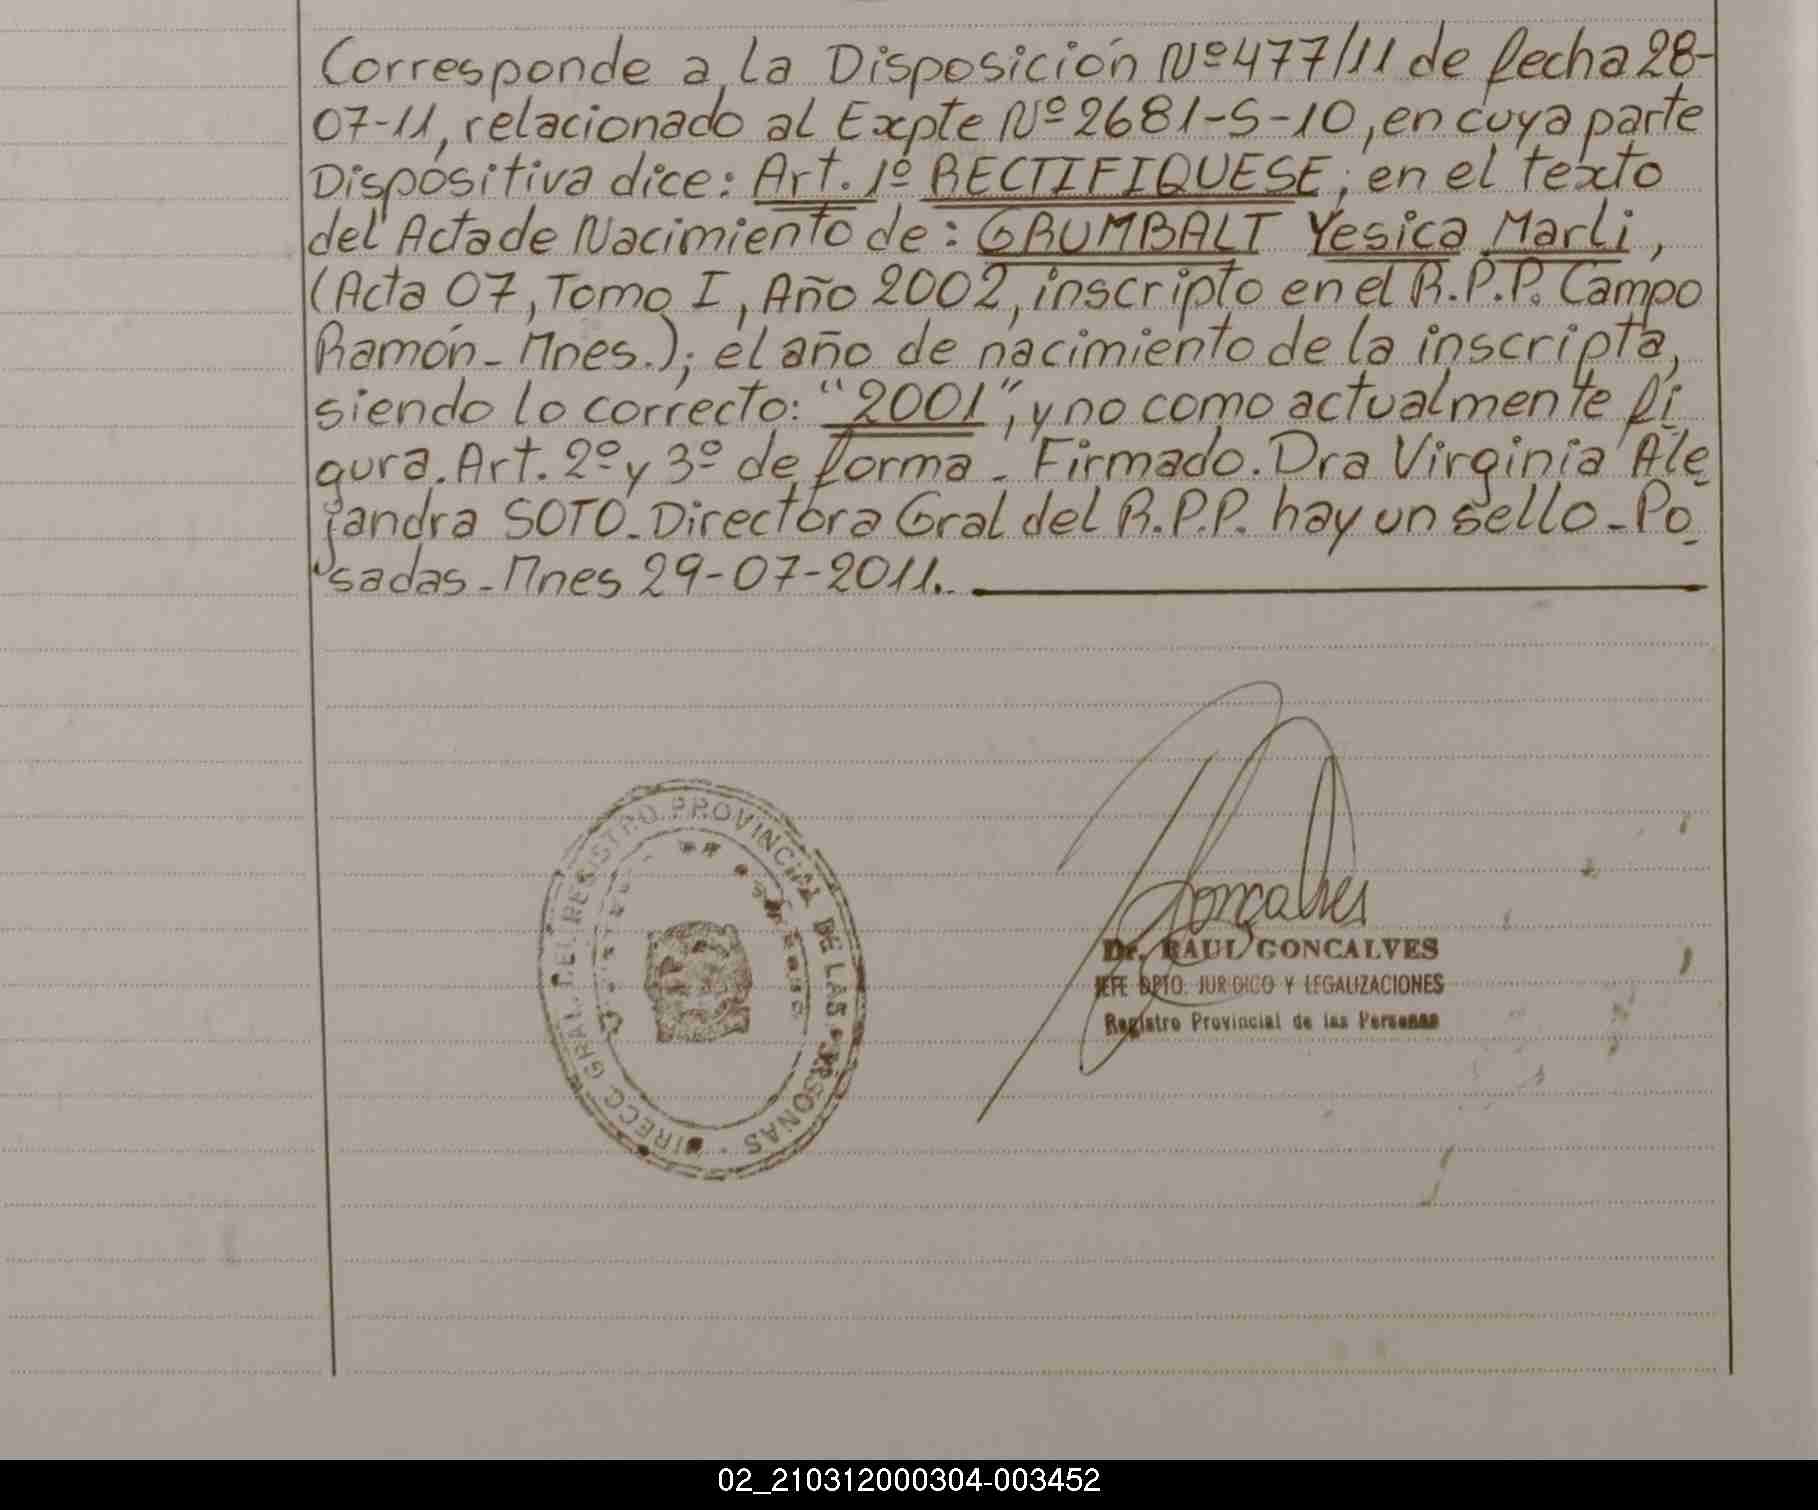 Corresponde a la Disposición Nº 477/11 de fecha 28-
07-11, relacionado al Expte Nº 2681-S-10, en cuya parte
Dispositiva dice: Art. 1º RECTIFIQUESE; en el texto
del Acta de Nacimiento de: GRUMBALT Yesica Marli,
(Acta 07, Tomo I, Año 2002, inscripto en el R.P.P. Campo
Ramón - Mnes.); el año de nacimiento de la inscripta,
siendo lo correcto: "2001", y no como actualmente fi
gura. Art. 2º y 3º de forma - Firmado. Dra Virginia Ale
jandra SOTO - Directora Gral del R.P.P. hay un sello - Po
sadas - Mnes 29-07-2011.
DIRECC GRAL. DEL REGISTRO PROVINCIAL DE LAS PERSONAS
Goncalves
Dr. RAUL GONCALVES
JEFE DPTO. JURIDICO Y LEGALIZACIONES
Registro Provincial de las Personas
02_210312000304-003452